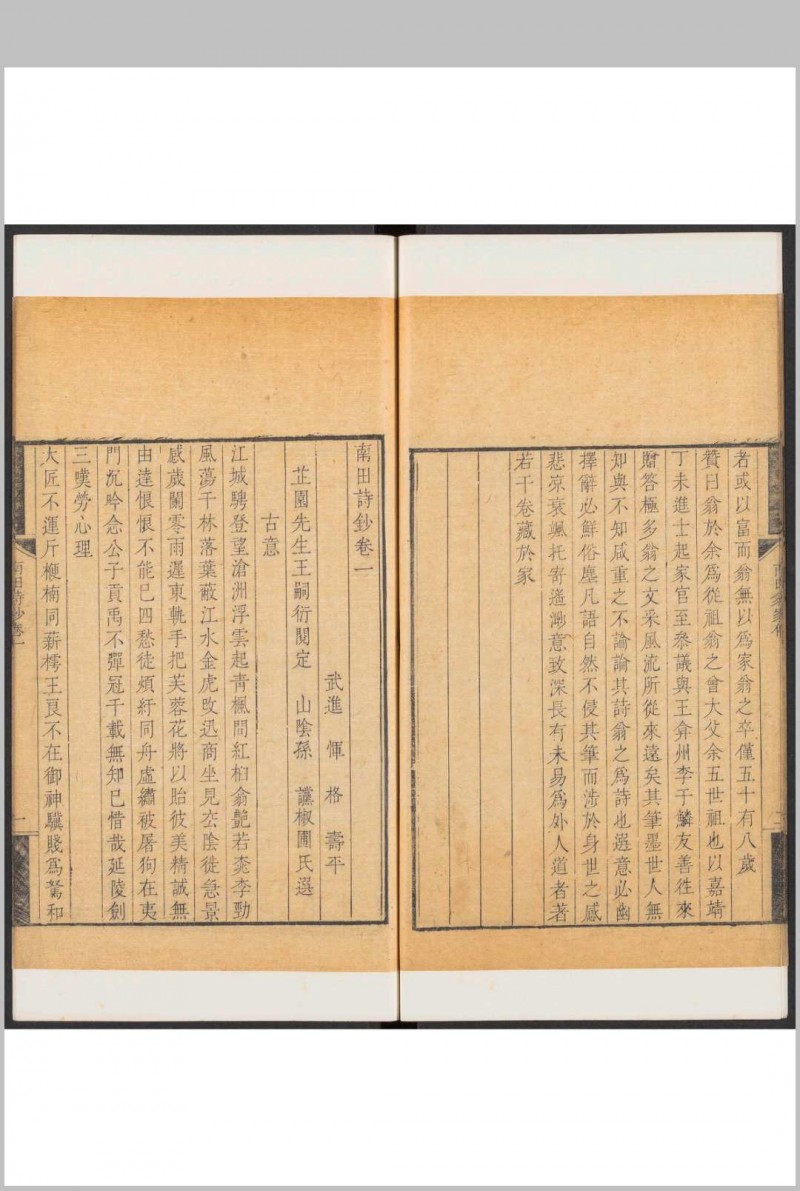 者或以富而翁無以為家翁之卒僅五十有八歲
贊曰翁於余為從祖翁之曾大父余五世祖也以嘉靖
丁未進士起家官至參議與王弇州李于鱗友善徃來
贈答極多翁之文采風流所從來遠矣其筆墨世人無
知與不知咸重之不論論其詩翁之為詩也選意必幽
擇辭必鮮俗塵凡語自然不侵其筆而涉於身世之感
悲凉哀颯托寄遙渺意致深長有未易為外人道者著
若干卷藏於家
南田詩鈔卷一
武進 惲 格 壽平
芷園先生王嗣衍閱定 山陰孫 讜椒圃氏選
古意
江城騁登望滄洲浮雲起青楓間紅桕翕艷若桃李勁
風蕩千林落葉蔽江水金虎改迅商坐見玄陰徙急景
感歲闌零雨遲東軌手把芙蓉花將以貽彼美精誠無
由達悢悢不能已四愁徒煩紆同舟虛繡被屠狗在夷
門沉吟念公子貢禹不彈冠千載無知已惜哉延陵劍
三嘆勞心理
大匠不運斤楩楠同薪樗王良不在御神驥賤為駑和
南田詩鈔卷一
一